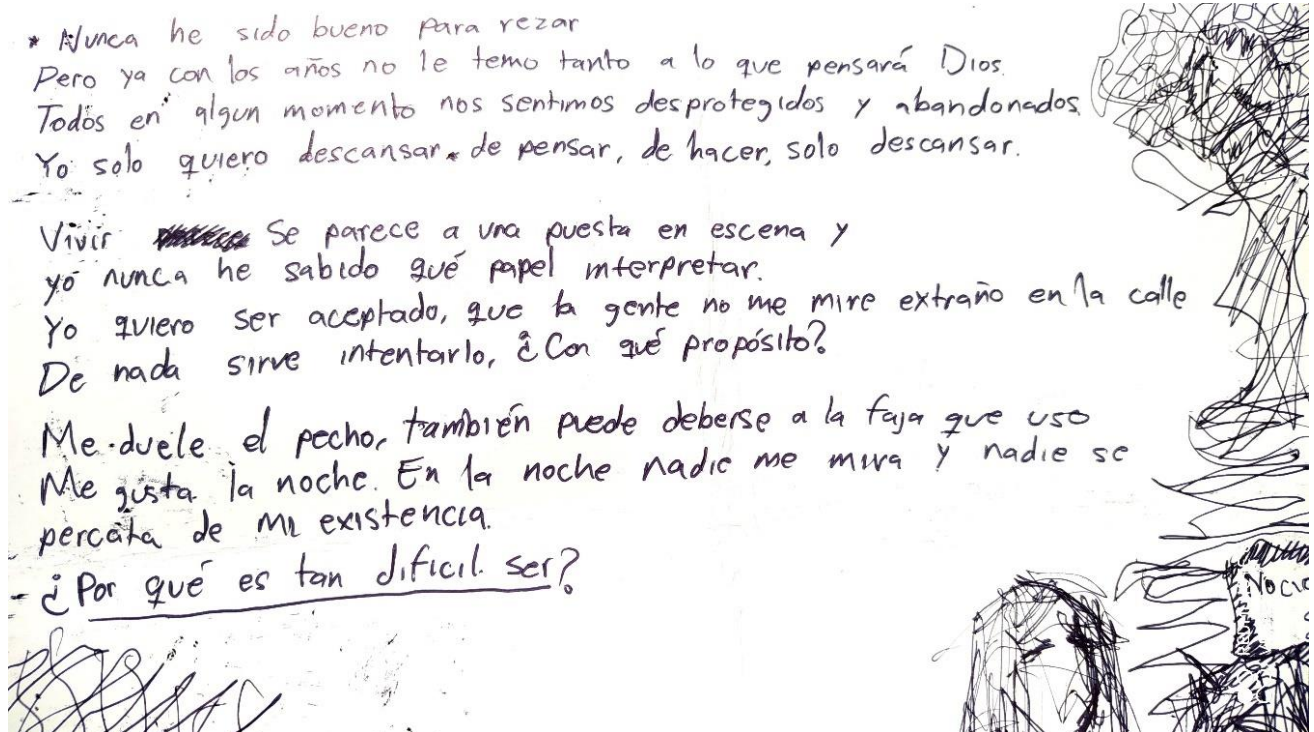 * Nunca he sido bueno para rezar
Pero ya con los años no le temo tanto a lo que pensará Dios.
Todos en algun momento nos sentimos desprotegidos y abandonados
Yo solo quiero descansar. de pensar, de hacer, solo descansar.
Vivir se parece a una puesta en escena y
yo nunca he sabido qué papel interpretar.
Yo quiero ser aceptado, que la gente no me mire extraño en la calle
De nada sirve intentarlo, ¿Con qué propósito?
Me duele el pecho, también puede deberse a la faja que uso
Me gusta la noche. En la noche nadie me mira y nadie se
percata de mi existencia.
- ¿Por qué es tan dificil ser?